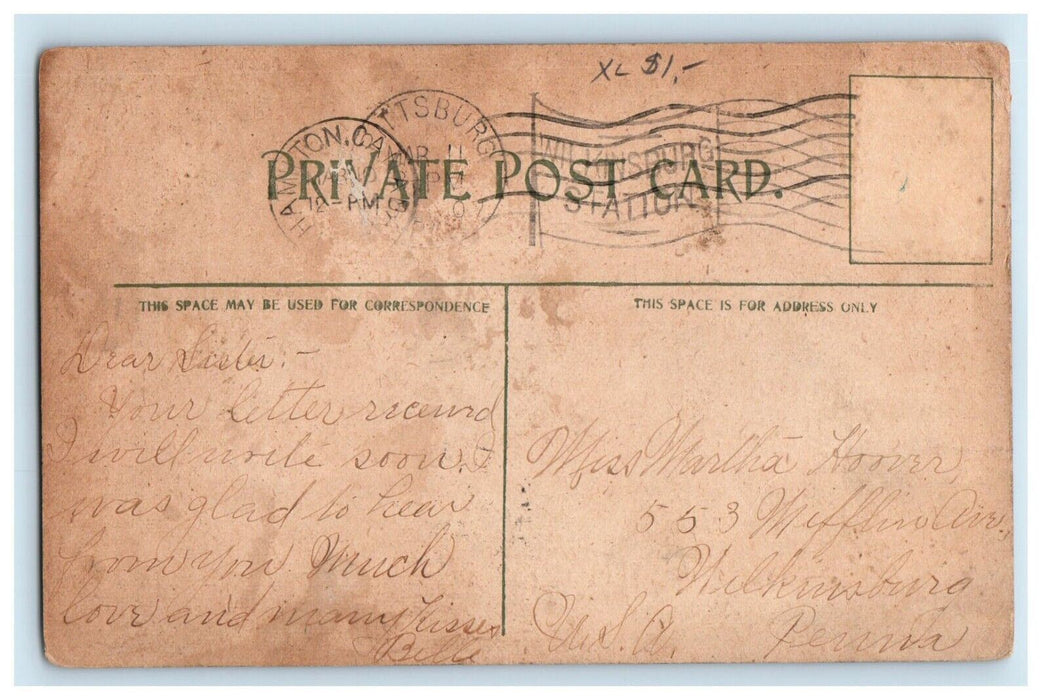 XL $1,-
HAMPTON, CAN
PM
PITTSBURG
MAR 11
WILKINSBURG
STATION.
PRIVATE POST CARD.
THIS SPACE MAY BE USED FOR CORRESPONDENCE
Dear Sister. -
Your letter received
I will write soon. I
was glad to hear
from you Much
love and many kisses
Belle
THIS SPACE IS FOR ADDRESS ONLY
Miss Martha Hoover
553 Mifflin Ave.
Wilkinsburg
Penna
U.S.A.